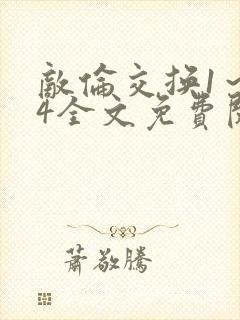 敵倫交換1~
4全文免費閱
蕭敬騰